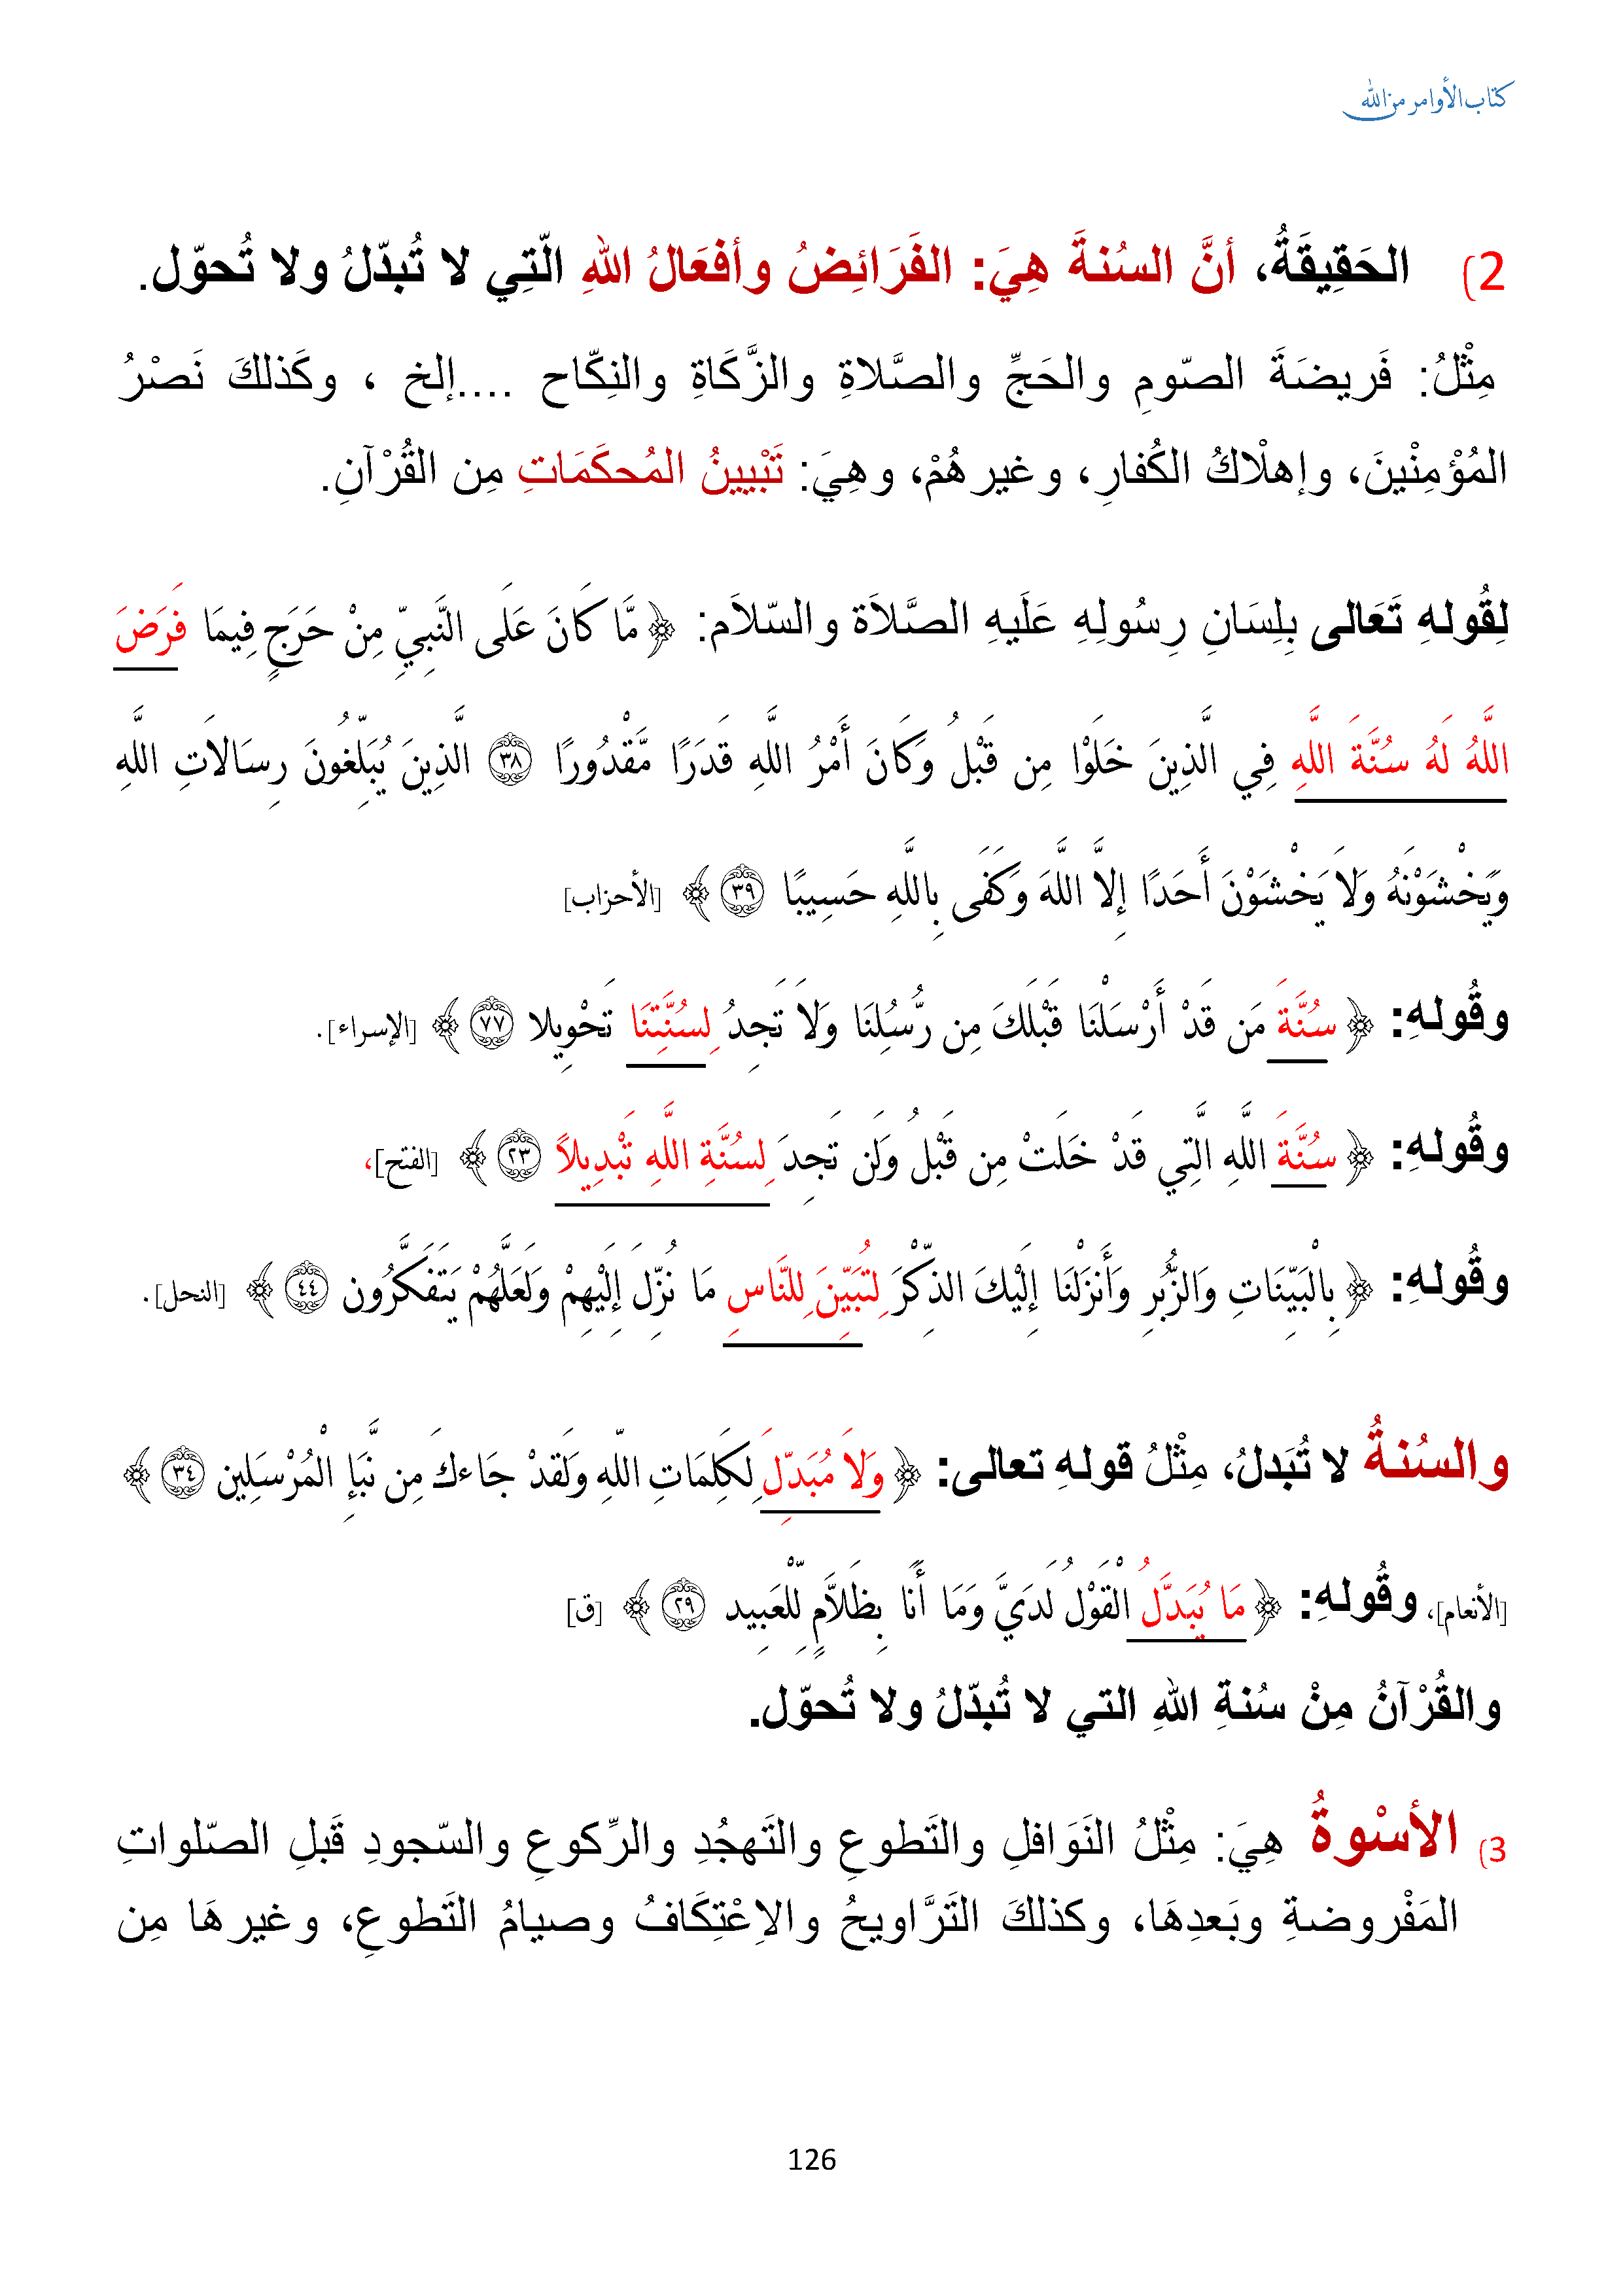 كتاب الأوامر من الله
2) الحَقِيقَةُ، أنَّ السُنةَ هِيَ: الفَرَائِضُ وأفعَالُ اللهِ الّتِي لا تُبدّلُ ولا تُحوّل.
مِثْلُ: فَريضَةَ الصّومِ والحَجِّ والصَّلاةِ والزَّكَاةِ والنِكّاح ....إلخ ، وكَذلكَ نَصْرُ
المُؤْمِنْينَ، وإهلْاكُ الكُفارِ ، وغيرهُمْ، وهِيَ: تَبْيينُ المُحكَمَاتِ مِن القُرْآنِ.
لِقُولهِ تَعَالى بِلِسَانِ رِسُولِهِ عَلَيهِ الصَّلاَة والسّلاَم: ﴿ مَّا كَانَ عَلَى النَّبِيِّ مِنْ حَرَجٍ فِيمَا فَرَضَ
اللَّهُ لَهُ سُنَّةَ اللَّهِ فِي الَّذِينَ خَلَوْا مِن قَبْلُ وَكَانَ أَمْرُ اللَّهِ قَدَرًا مَّقْدُورًا ٣٨ الَّذِينَ يُبَلِّغُونَ رِسَالَاتِ اللَّهِ
وَيَخْشَوْنَهُ وَلَا يَخْشَوْنَ أَحَدًا إِلَّا اللَّهَ وَكَفَى بِاللَّهِ حَسِيبًا ٣٩ ﴾ [الأحزاب]
وقُولهِ: ﴿ سُنَّةَ مَن قَدْ أَرْسَلْنَا قَبْلَكَ مِن رُّسُلِنَا وَلَا تَجِدُ لِسُنَّتِنَا تَحْوِيلا ٧٧ ﴾ [الإسراء].
وقُولهِ: ﴿ سُنَّةَ اللَّهِ الَّتِي قَدْ خَلَتْ مِن قَبْلُ وَلَن تَجِدَ لِسُنَّةِ اللَّهِ تَبْدِيلاً ٢٣ ﴾ [الفتح]،
وقُولهِ: ﴿ بِالْبَيِّنَاتِ وَالزُّبُرِ وَأَنزَلْنَا إِلَيْكَ الذِّكْرَ لِتُبَيِّنَ لِلنَّاسِ مَا نُزِّلَ إِلَيْهِمْ وَلَعَلَّهُمْ يَتَفَكَّرُون ٤٤ ﴾ [النحل].
والسُنةُ لا تُبَدلُ، مِثْلُ قولهِ تعالى: ﴿ وَلَا مُبَدِّلَ لِكَلِمَاتِ اللَّهِ وَلَقَدْ جَاءكَ مِن نَّبَإِ الْمُرْسَلِين ٣٤ ﴾
[الأنعام]، وقُولهِ: ﴿ مَا يُبَدَّلُ الْقَوْلُ لَدَيَّ وَمَا أَنَا بِظَلَّامٍ لِّلْعَبِيد ٢٩ ﴾ [ق]
والقُرْآنُ مِنْ سُنةِ اللهِ التي لا تُبدّلُ ولا تُحوّل.
3) الأسْوةُ هِيَ: مِثْلُ النَوَافلِ والتَطوعِ والتَهجُدِ والرِّكوعِ والسّجودِ قَبلِ الصّلواتِ
المَفْروضةِ وبَعدِهَا، وكذلكَ التَرَّاويحُ والاِعْتِكَافُ وصيامُ التَطوعِ، وغيرهَا مِن
126